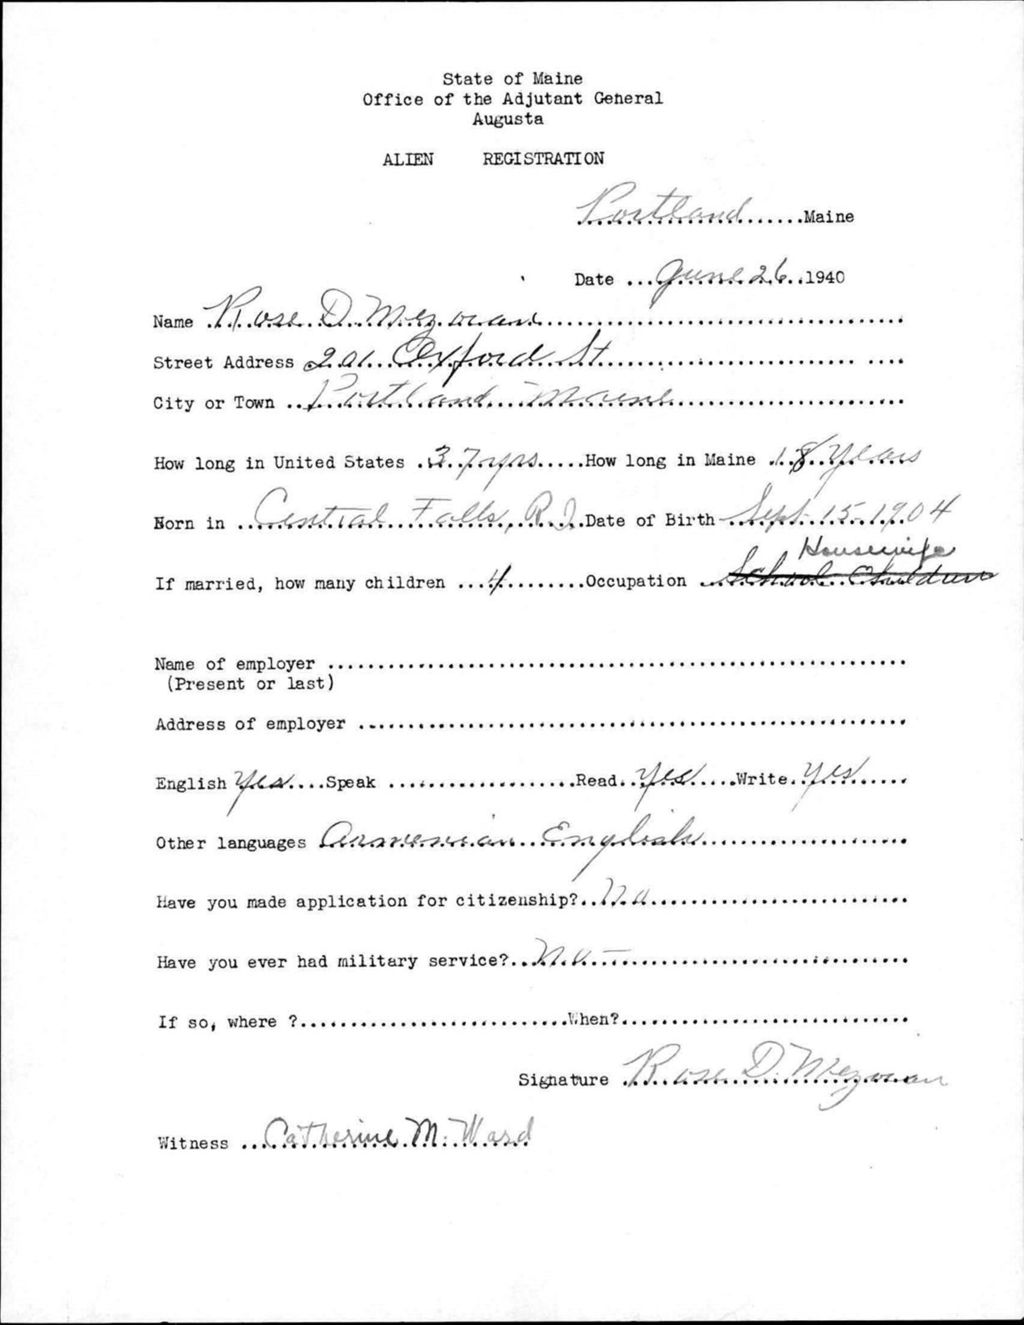 State of Maine
Office of the Adjutant General
Augusta
ALIEN REGISTRATION
Portland.......Maine
Date ...June 26...1940
Name Rose D. Mezoian
Street Address 201 Oxford St.
City or Town Portland Maine
How long in United States 37 yrs How long in Maine 18 Years
Born in Central Falls, R.I. Date of Birth Sept. 15. 1904
Housewife
If married, how many children 4 Occupation School Children
Name of employer
(Present or last)
Address of employer
English Yes Speak Read Yes Write Yes
Other languages Armenian English
Have you made application for citizenship? No
Have you ever had military service? No —
If so, where ? When?
Signature Rose D. Mezoian
Witness Catherine M. Ward